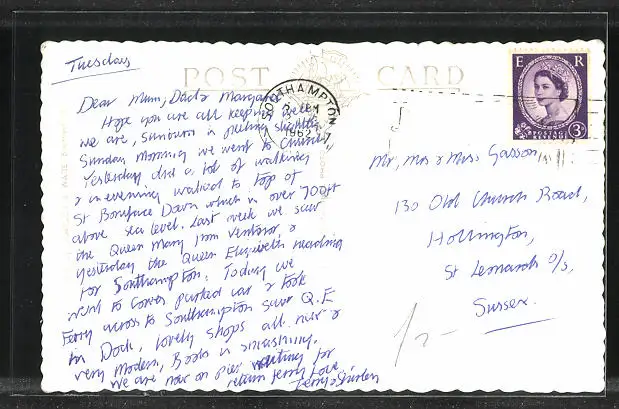 Tuesday
POST CARD
Dear Mum, Dad & Margaret
Hope you are all keeping well
we are, sunburn is peeling slightly
Sunday Morning we went to Church
Yesterday did a lot of walking
& in evening walked to top of
St Boniface Down which is over 700ft
above sea level. Last week we saw
the Queen Mary from Ventnor &
yesterday the Queen Elizabeth heading
for Southampton. Today we
went to Cowes parked car & took
Ferry across to Southampton saw Q.E
in Dock, lovely shops all new &
very modern, Boots is smashing.
We are now on pier waiting for
return ferry Love
Terry & Shirley
SOUTHAMPTON
1962
E R
POSTAGE
REVENUE
3D
Mr, Mrs & Miss Gasson,
130 Old Church Road,
Hollington,
St Leonards o/s,
Sussex.
1/-